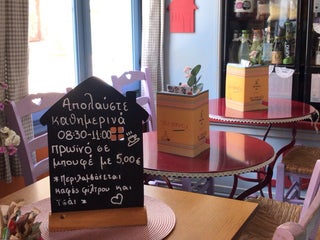 Απολαύστε
καθημερινά
08:30-11:00
πρωινό σε
μπουφέ με 5,00€
*Περιλαμβάνεται
καφές φίλτρου και
τσάι